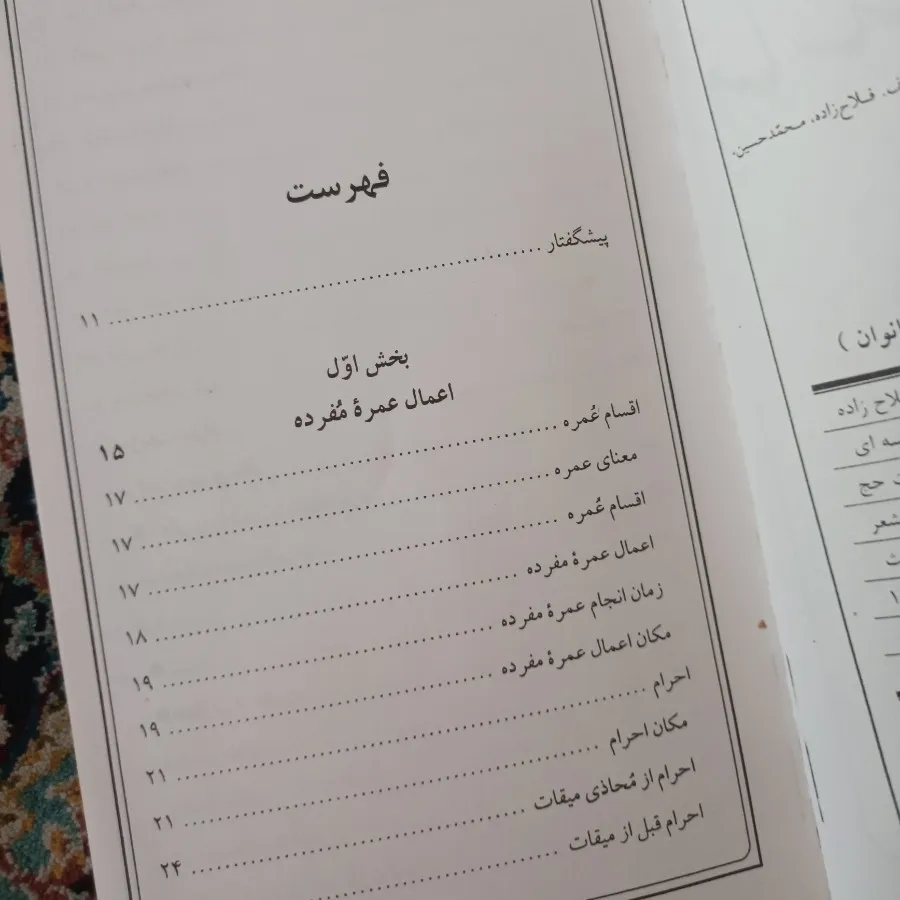 فهرست
پیشگفتار ........ ۱۱
بخش اوّل
اعمال عمرهٔ مُفرده ۱۵
اقسام عُمره ........ ۱۷
معنای عمره ........ ۱۷
اقسام عُمره ........ ۱۷
اعمال عمرهٔ مفرده ........ ۱۸
زمان انجام عمرهٔ مفرده ........ ۱۹
مکان اعمال عمرهٔ مفرده ........ ۱۹
احرام ........ ۲۱
مکان احرام ........ ۲۱
احرام از مُحاذی میقات ........ ۲۴
احرام قبل از میقات ........
فلاح‌زاده، محمّدحسین،
انوان )
لاح زاده
سه ای
ت حج
شعر
ث
۱